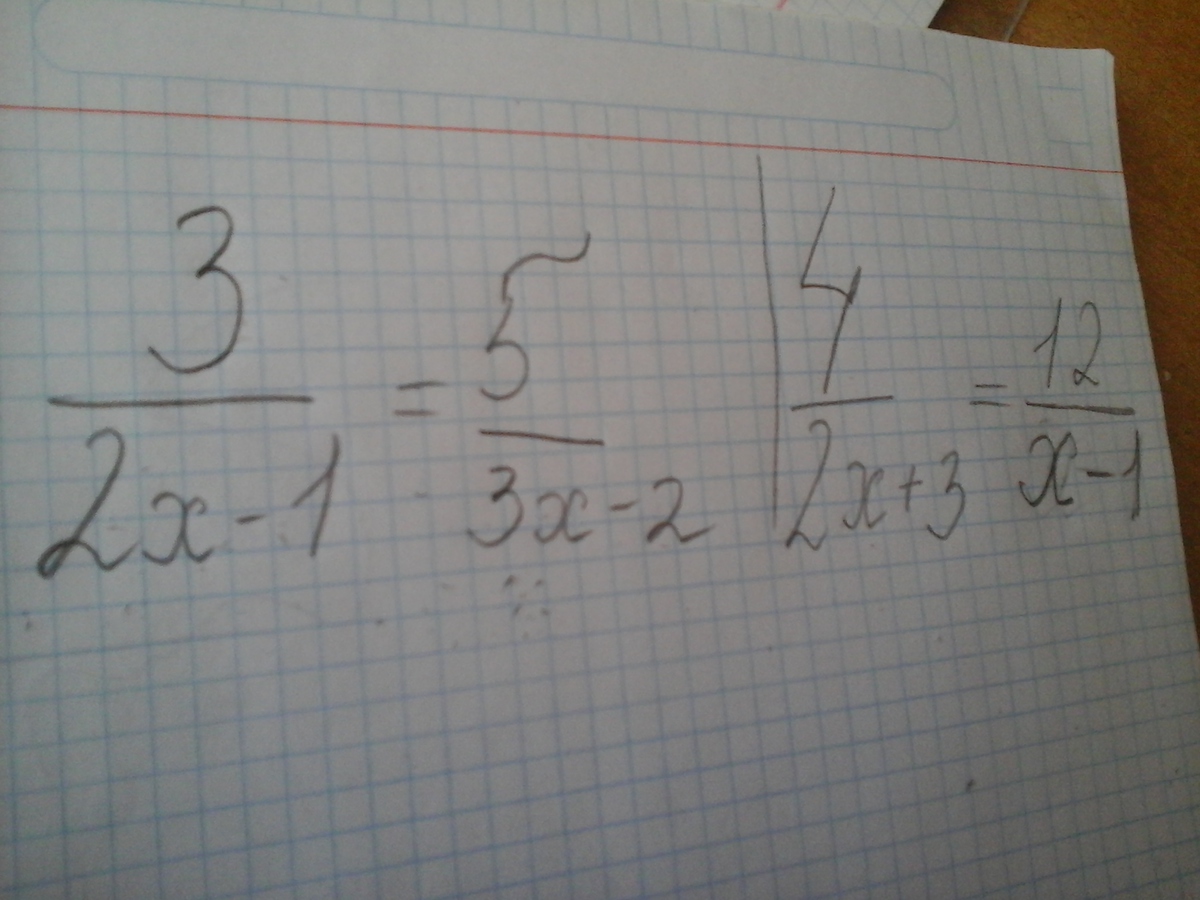 3/(2x-1) = 5/(3x-2) | 4/(2x+3) = 12/(x-1)